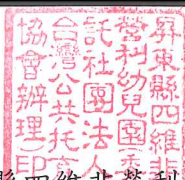 屏東縣四維非
營利幼兒園(委
託社團法人
台灣公共托育
協會辦理)印
縣四維非營利